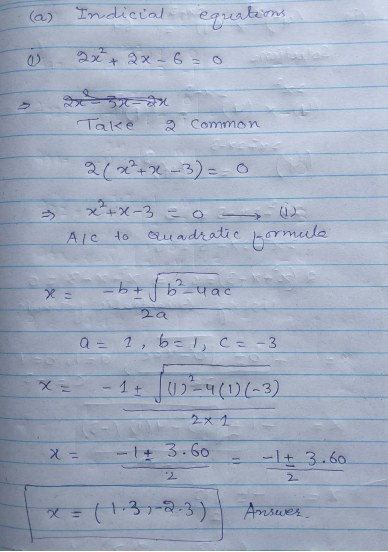 (a) Indicial equations
(i) 2x² + 2x - 6 = 0
⇒ 2x² - 3x - 2x
Take 2 Common
2(x² + x - 3) = 0
⇒ x² + x - 3 = 0 ⟶ (i)
A/c to quadratic formula
x = -b ± √(b² - 4ac) / 2a
a = 1, b = 1, c = -3
x = -1 ± √((1)² - 4(1)(-3)) / 2 × 1
x = -1 ± 3.60 / 2 = -1 ± 3.60 / 2
x = (1.3, -2.3) Answer.